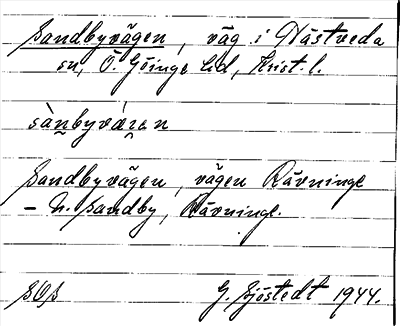 Sandbyvägen, väg i Nästveda
sn, Ö. Göinge hd, Krist. l.
sànbyvá̱ɛn
Sandbyvägen, vägen Rävninge
– N. Sandby, Rävninge.
SOS G. Sjöstedt 1944.